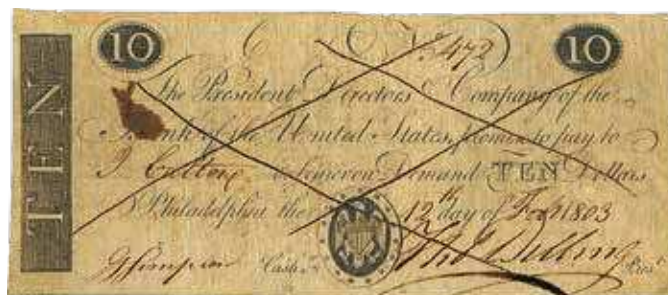 10 No. 472 10
TEN
The President Directors & Company of the
Bank of the United States, promise to pay to
or bearer on Demand TEN Dollars
Philadelphia the 12th day of Feby 1803
J Simpson Cashr. Tho. Willing Presit.